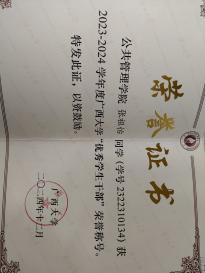 荣誉证书
公共管理学院 张祖怡 同学（学号 2322310134）获
2023-2024 学年度广西大学“优秀学生干部”荣誉称号。
特发此证，以资鼓励。
广西大学
二〇二四年十二月